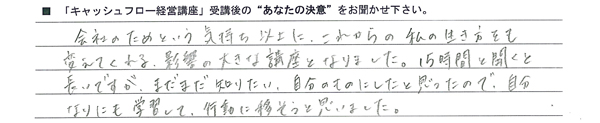 ■ 「キャッシュフロー経営講座」受講後の“あなたの決意”をお聞かせ下さい。
会社のためという気持ち以上に、これからの私の生き方をも
変えてくれる、影響の大きな講座となりました。15時間と聞くと
長いですが、まだまだ知りたい、自分のものにしたと思ったので、自分
なりにも学習して、行動に移そうと思いました。